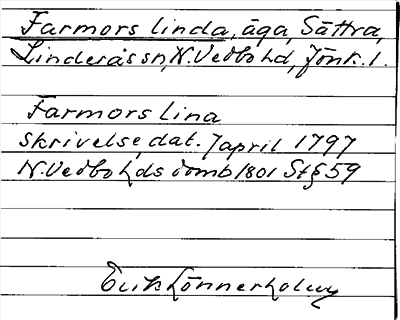 Farmors linda, äga, Sättra,
Linderås sn, N. Vedbo hd, Jönk. l.
Farmors lina
skrivelse, dat. 7 april 1797
N. Vedbo hds domb 1801 St § 59
Erik Lönnerholm